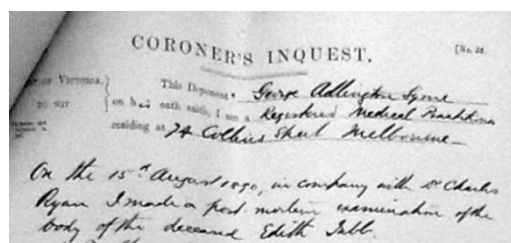 CORONER'S INQUEST.
[No. 24.
OF VICTORIA.
TO WIT
This Deponent George Adlington Syme
on his oath saith, I am a Registered Medical Practitioner
residing at 74 Collins Street Melbourne
On the 15th August 1890, in company with Dr Charles
Ryan I made a post mortem examination of the
body of the deceased Edith Tubb.